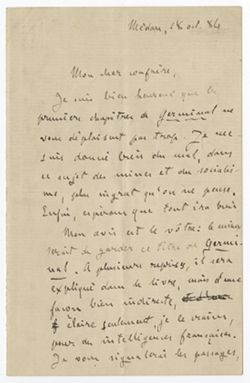 Médan, 18 oct. 84
Mon cher confrère,
Je suis bien heureux que les
premiers chapitres de Germinal ne
vous déplaisent pas trop. Je me
suis donné bien du mal, dans
ce sujet des mines et du socialis-
me, plus ingrat qu'on ne pense.
Enfin, espérons que tout ira bien
Mon avis est le vôtre: le mieux
serait de garder ce titre de Germi-
nal. A plusieurs reprises, il sera
expliqué dans le livre, mais d'une
façon bien indirecte,
claire seulement, je le crains,
pour des intelligences françaises.
Je vous signalerai les passages,